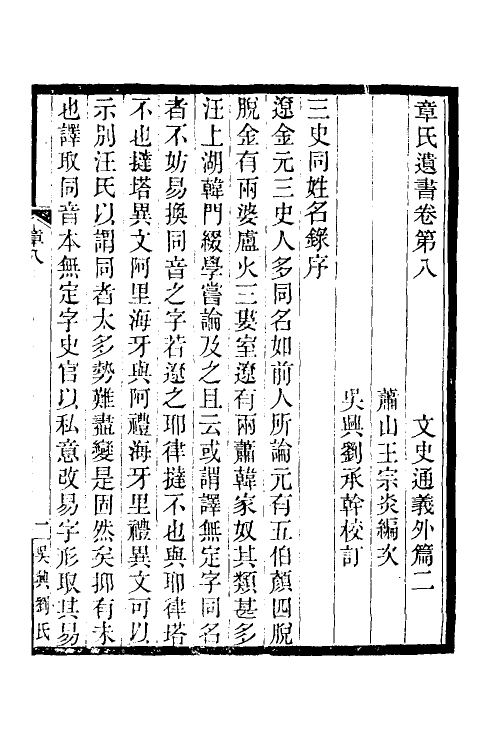 章氏遺書卷第八　文史通義外篇二
蕭山王宗炎編次
吳興劉承幹校訂
三史同姓名錄序
遼金元三史人多同名如前人所論元有五伯顏四脫
脫金有兩婆盧火三婁室遼有兩蕭韓家奴其類甚多
汪上湖韓門綴學嘗論及之且云或謂譯無定字同名
者不妨易換同音之字若遼之耶律撻不也與耶律塔
不也撻塔異文阿里海牙與阿禮海牙里禮異文可以
示別汪氏以謂同者太多勢難盡變是固然矣抑有未
也譯取同音本無定字史官以私意改易字形取其易
章八
一
吳興劉氏